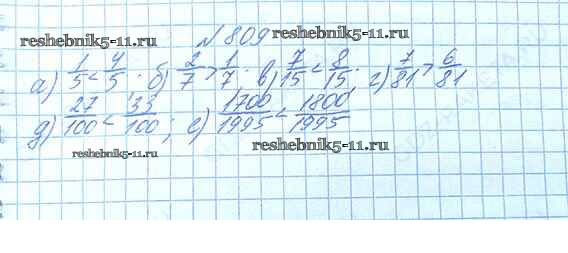 № 809
reshebnik5-11.ru reshebnik5-11.ru
а) 1/5 < 4/5. б) 2/7 > 1/7. в) 7/15 < 8/15. г) 7/81 > 6/81
д) 27/100 < 33/100; е) 1700/1995 < 1800/1995
reshebnik5-11.ru reshebnik5-11.ru
reshebnik5-11.ru